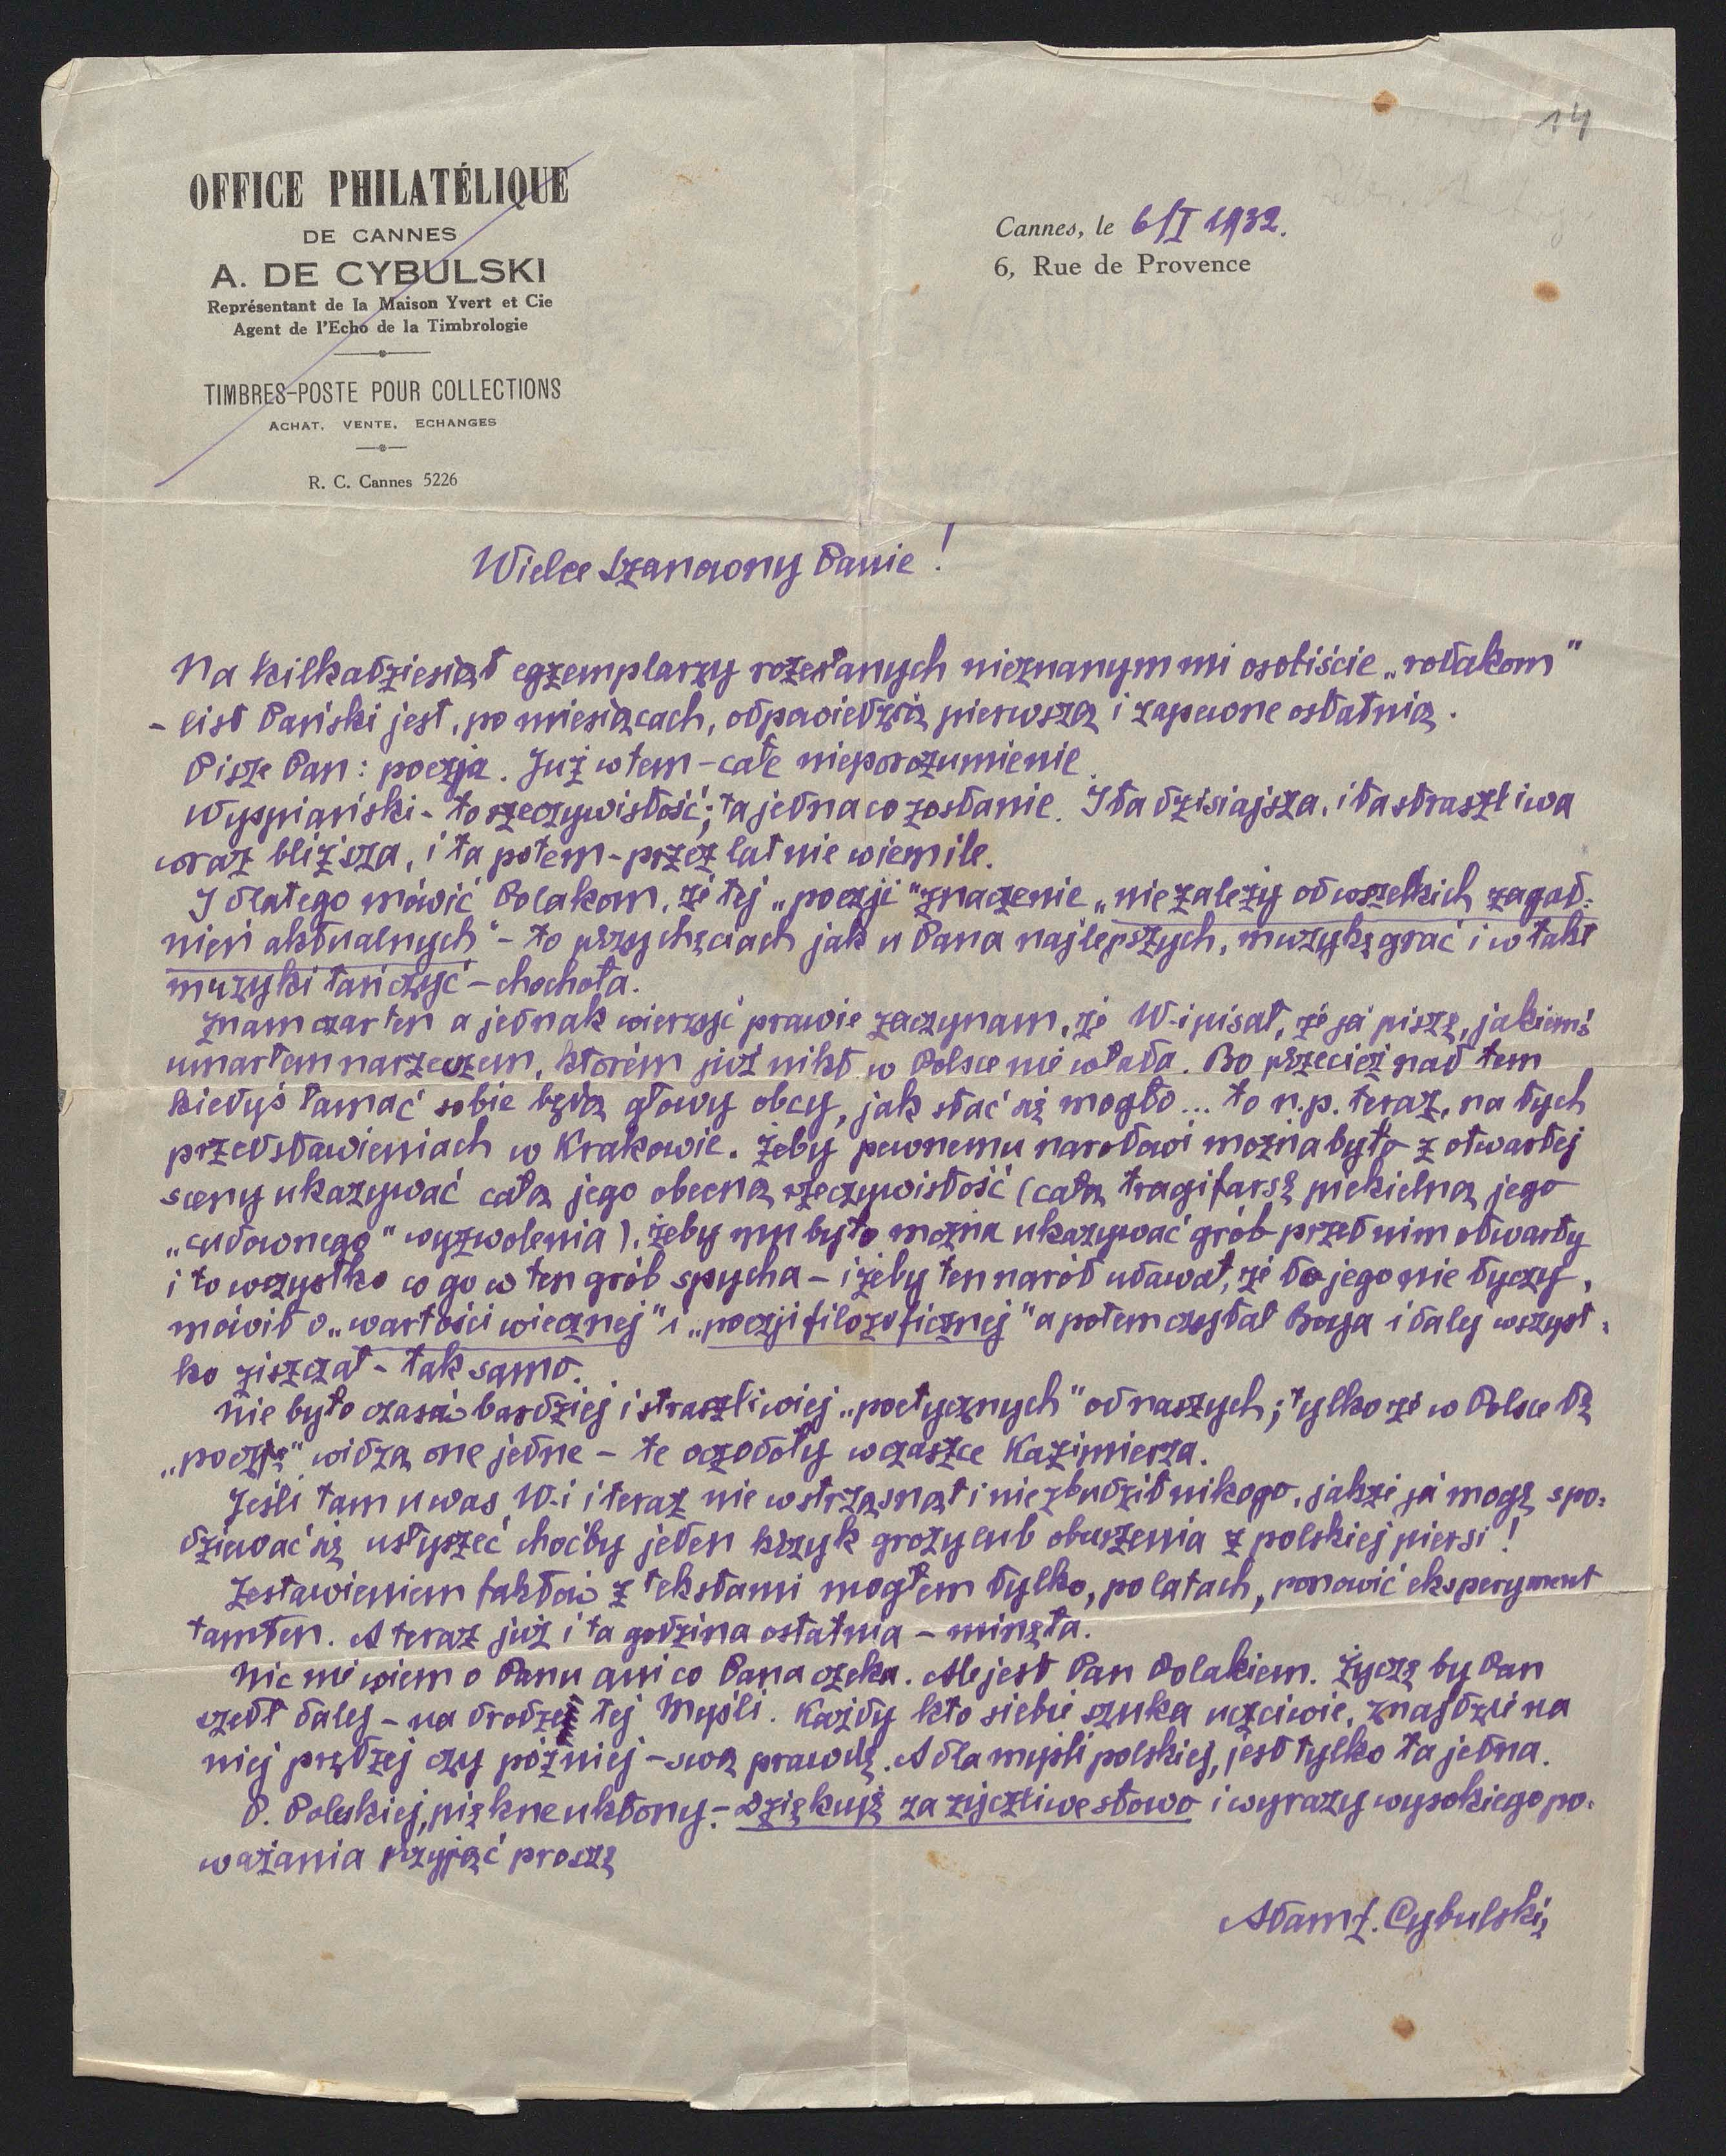 14
OFFICE PHILATÉLIQUE
DE CANNES
A. DE CYBULSKI
Représentant de la Maison Yvert et Cie
Agent de l'Echo de la Timbrologie
TIMBRES-POSTE POUR COLLECTIONS
ACHAT. VENTE. ECHANGES
R. C. Cannes 5226
Cannes, le 6/I 1932.
6, Rue de Provence
Wielce Szanowny Panie!
Na kilkadziesiąt egzemplarzy rozesłanych nieznanym mi osobiście „rodakom"
- list Pański jest, po miesiącach, odpowiedzią pierwszą i zapewne ostatnią.
Pisze Pan: poezja. Już w tem - całe nieporozumienie.
Wyspiański - to rzeczywistość; ta jedna co zostanie. I ta dzisiajsza, i ta straszliwa
coraz bliższa, i ta potem - przez lat nie wiem ile.
I dlatego mówić Polakom, że tej „poezji" znaczenie „nie zależy od wszelkich zagad-
nień aktualnych" - to przy chęciach jak u Pana najlepszych, muzykę grać i w takt
muzyki tańczyć - chochoła.
Znam czar ten a jednak wierzyć prawie zaczynam, że W-i pisał, że ja piszę, jakiemś
umarłem narzeczem, którem już nikt w Polsce nie włada. Bo przecież nad tem
kiedyś łamać sobie będą głowy obcy, jak stać się mogło... to n.p. teraz, na tych
przedstawieniach w Krakowie. Żeby pewnemu narodowi można było z otwartej
sceny ukazywać całą jego obecną rzeczywistość (całą tragifarsę piekielną jego
„cudownego" wyzwolenia), żeby mu było można ukazywać grób przed nim otwarty
i to wszystko co go w ten grób spycha - i żeby ten naród udawał, że to jego nie tyczy,
mówił o „wartości wiecznej" i „poezji filozoficznej" a potem czytał Boya i dalej wszyst-
ko ziszczał - tak samo.
Nie było czasów bardziej i straszliwiej „poetycznych" od naszych; tylko że w Polsce tę
„poezję" widzą one jedne - te oczodoły w czaszce Kazimierza.
Jeśli tam u was W-i i teraz nie wstrząsnął i nie zbudził nikogo, jakże ja mogę spo-
dziewać się usłyszeć choćby jeden krzyk grozy lub oburzenia z polskiej piersi!
Zestawieniem faktów z tekstami mogłem tylko, po latach, ponowić eksperyment
tamten. A teraz już i ta godzina ostatnia - minęła.
Nic nie wiem o Panu ani co Pana czeka. Ale jest Pan Polakiem. Życzę by Pan
szedł dalej - na drodze tej Myśli. Każdy kto siebie szuka uczciwie, znajdzie na
niej prędzej czy później - swą prawdę. A dla myśli polskiej, jest tylko ta jedna.
P. Polskiej, piękne ukłony. - Dziękuję za życzliwe słowo i wyrazy wysokiego po-
ważania przyjąć proszę
Adam Ł. Cybulski